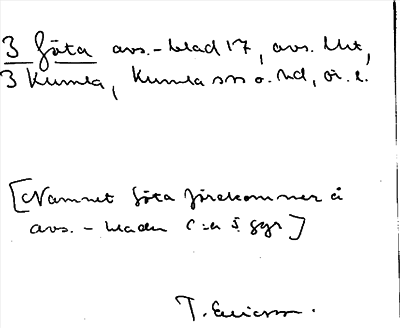 3 Göta avs.-blad 17, avs. Utt,
3 Kumla, Kumla sn o. hd, ör. l.
[Namnet Göta förekommer å
avs.-bladen c:a 5 ggr]
T. Ericsson.